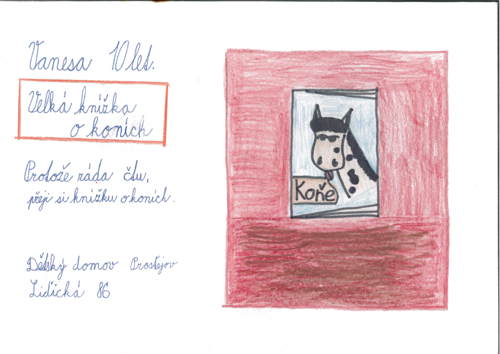 Vanesa 10 let.
Velká knížka
o koních
Protože ráda čtu,
přeji si knížku o koních.
Dětský domov Prostějov
Lidická 86
Koně